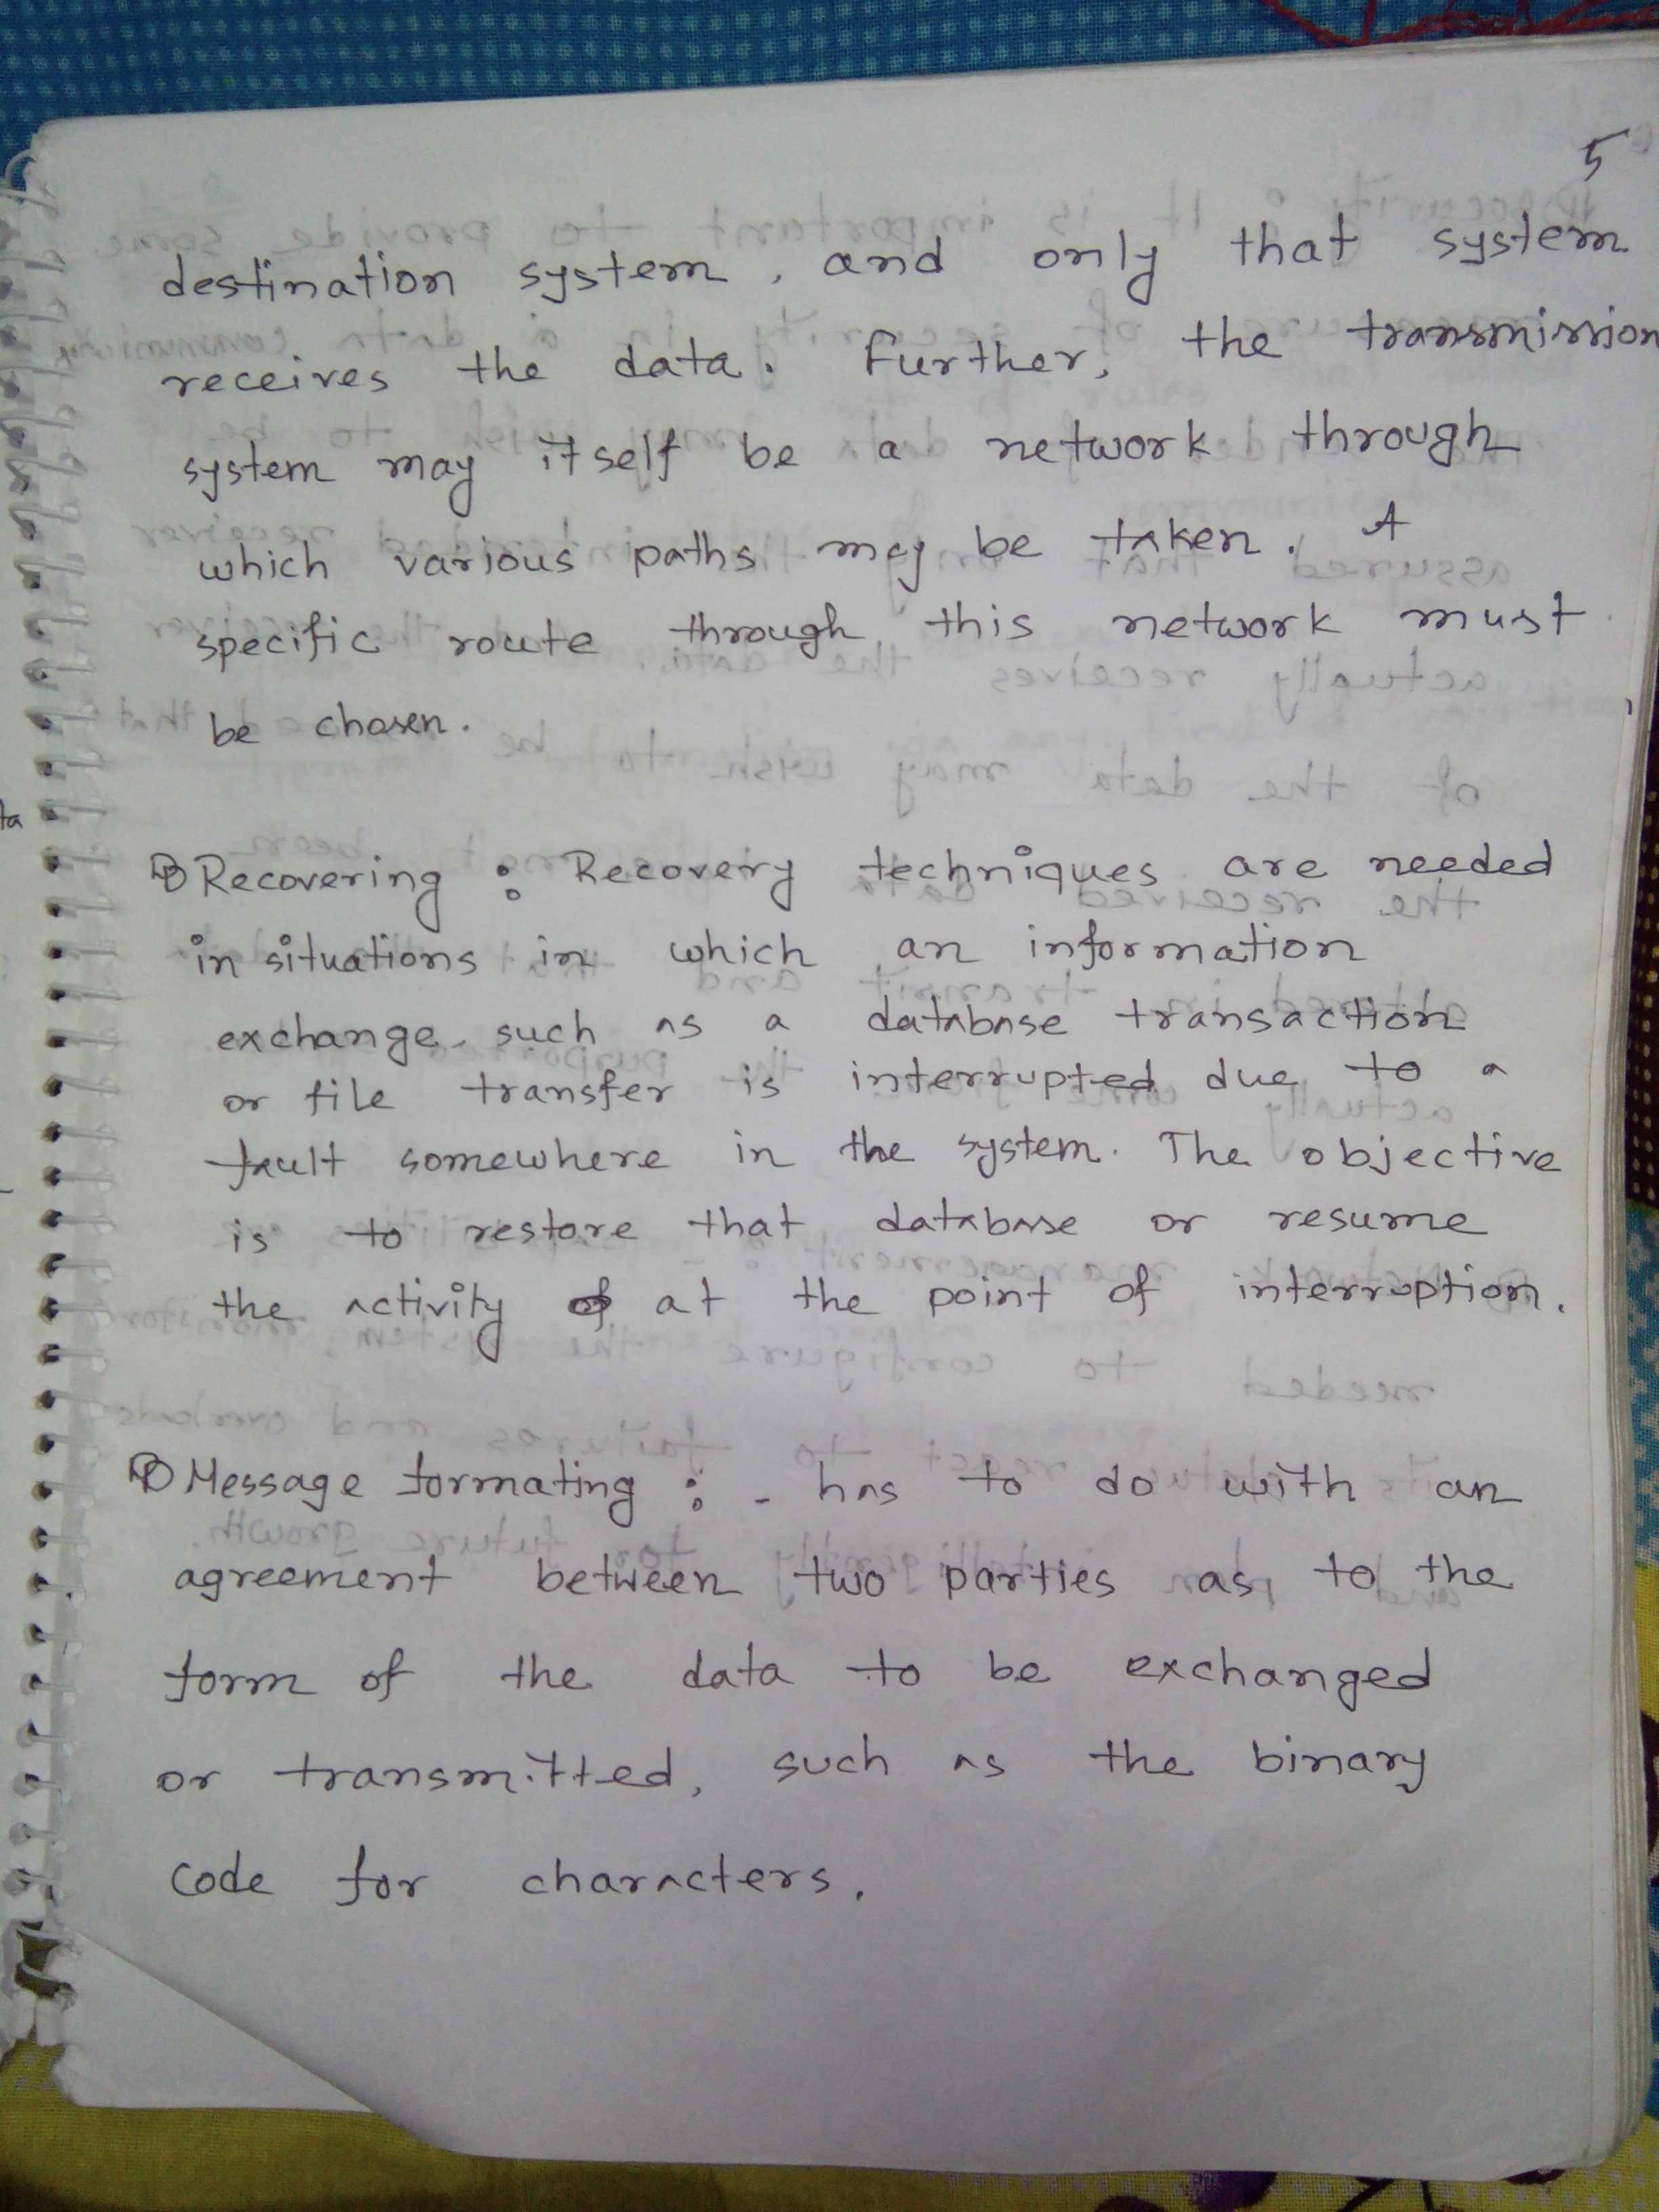 5
destination system, and only that system
receives the data. Further, the transmission
system may itself be a network through
which various paths may be taken. A
specific route through this network must
be chosen.
ta
Recovering : Recovery techniques are needed
in situations in which an information
exchange such as a database transaction
or file transfer is interrupted due to a
fault somewhere in the system. The objective
is to restore that database or resume
the activity at the point of interruption.
Message formating : - has to do with an
agreement between two parties as to the
form of the data to be exchanged
or transmitted, such as the binary
code for characters.